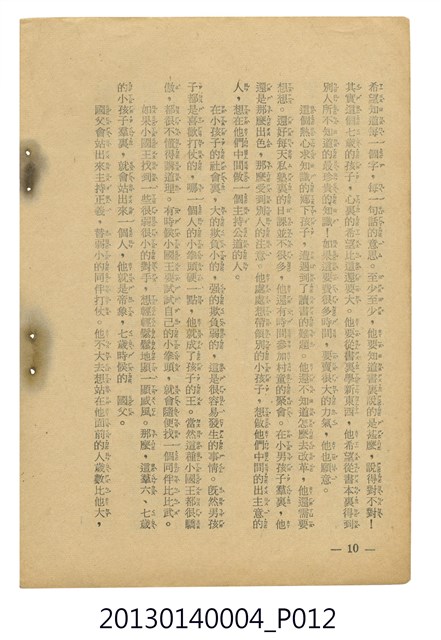 希望知道每一個字，每一句話的意思。至少至少，他要知道書裏說的是甚麼，說得對不對！
其實這個七歲的孩子，心裏的希望比這還要大。他要從書裏學新東西，他希望從書本裏得到
別人所不知道的最珍貴的知識！如果這要費很多時間，要賣很大的力氣，他也願意。
這個熱心求知識的鄉下孩子，遭遇到了讀書的難題。他還不知道怎麼去改革，他還需要
想想。還好每天私塾裏的日課並不很多，他還有時間參加村童的聚會。在小男孩子羣裏，他
還是那麼出色，那麼受到別人的注意。他處處想帶領別的小孩子，想做他們中間的出主意的
人，想在他們中間做一個主持公道的人。
在小孩子的社會裏，大的欺負小的，強的欺負弱的，這是很容易發生的事情。既然男孩
子都是喜歡打仗的，哪一個人的小拳頭硬一點，他就成了孩子的王。當然這種小國王都很驕
傲，都很不懂得講道理。有時候小國王要試試自己的小拳頭，就會隨便找一個同伴比比武。
如果小國王找到一些很弱很小的對手，想輕輕鬆鬆地顯一顯威風。那麼，這羣六、七歲
的小孩子羣裏，就會站出來一個人，他就是帝象，七歲時候的　國父。
國父會站出來主持正義，替弱小的同伴打仗。他不大去想站在他面前的人歲數比他大，
— 10 —
20130140004_P012